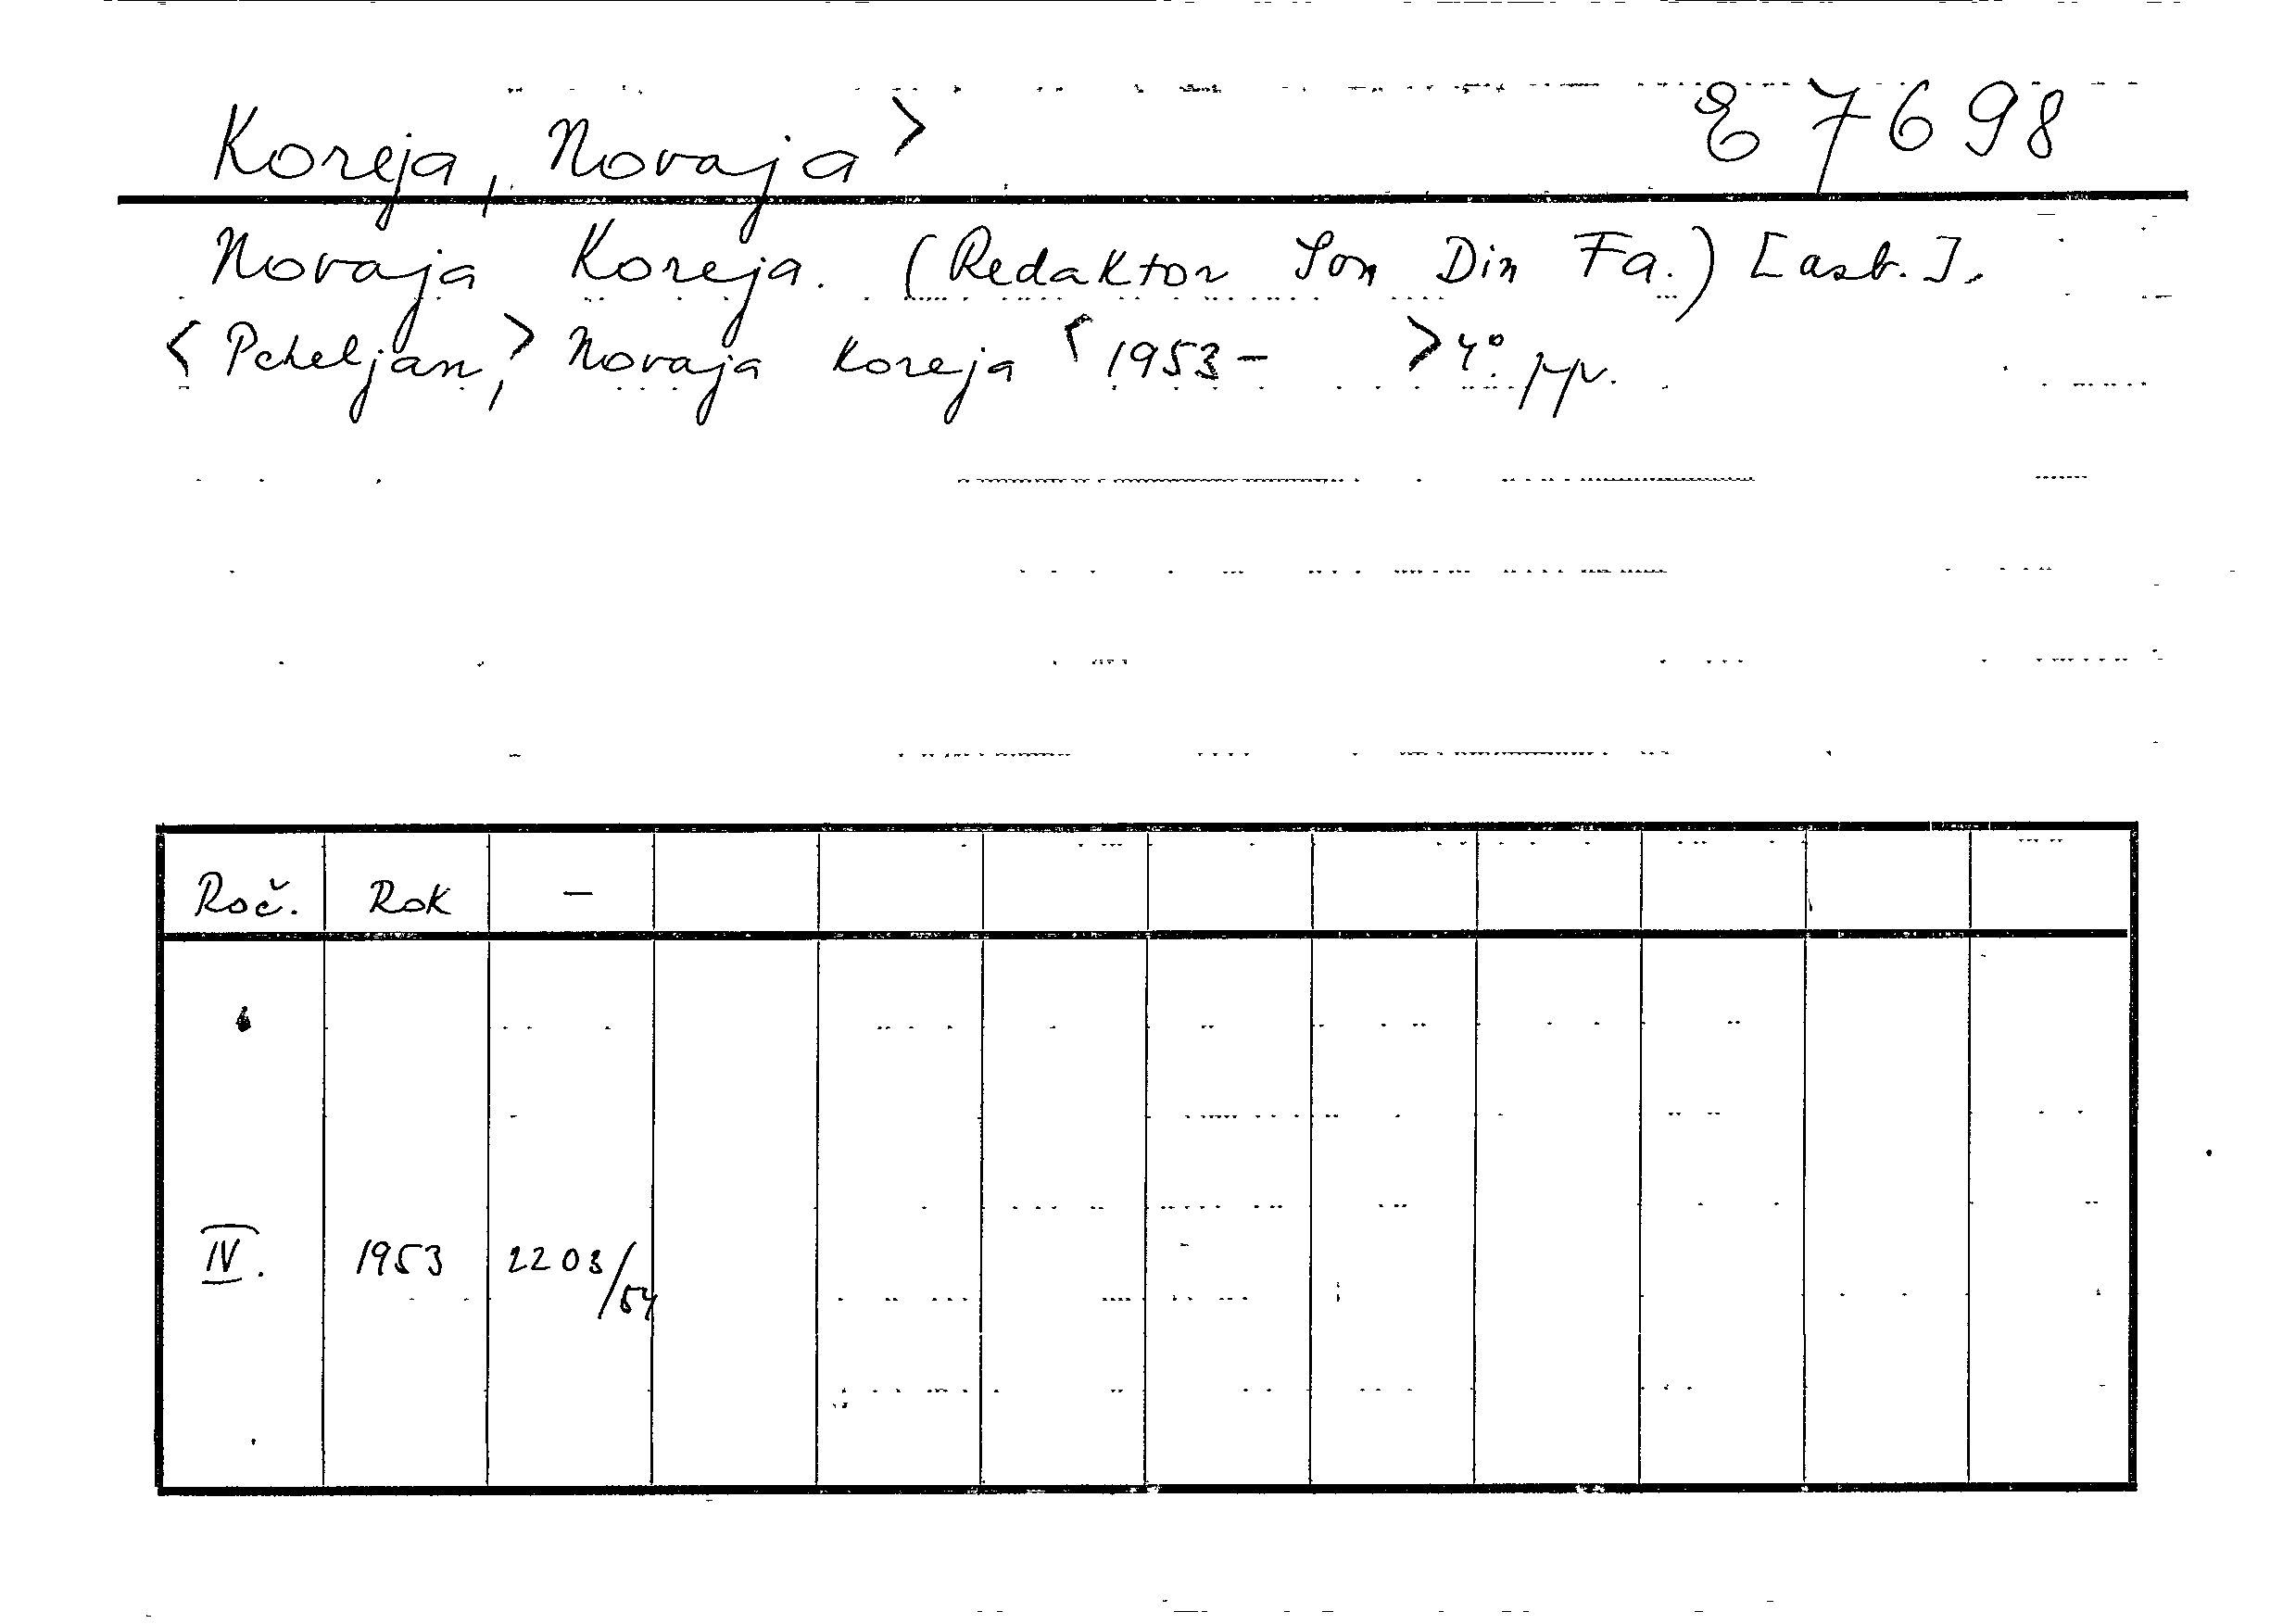 Koreja, Novaja> E 7698
Novaja Koreja. (Redaktor Son Din Fa.) [azb.].
<Pcheljan,> Novaja Koreja <1953- >4°. pp.
Roč. Rok -
IV. 1953 2203/54